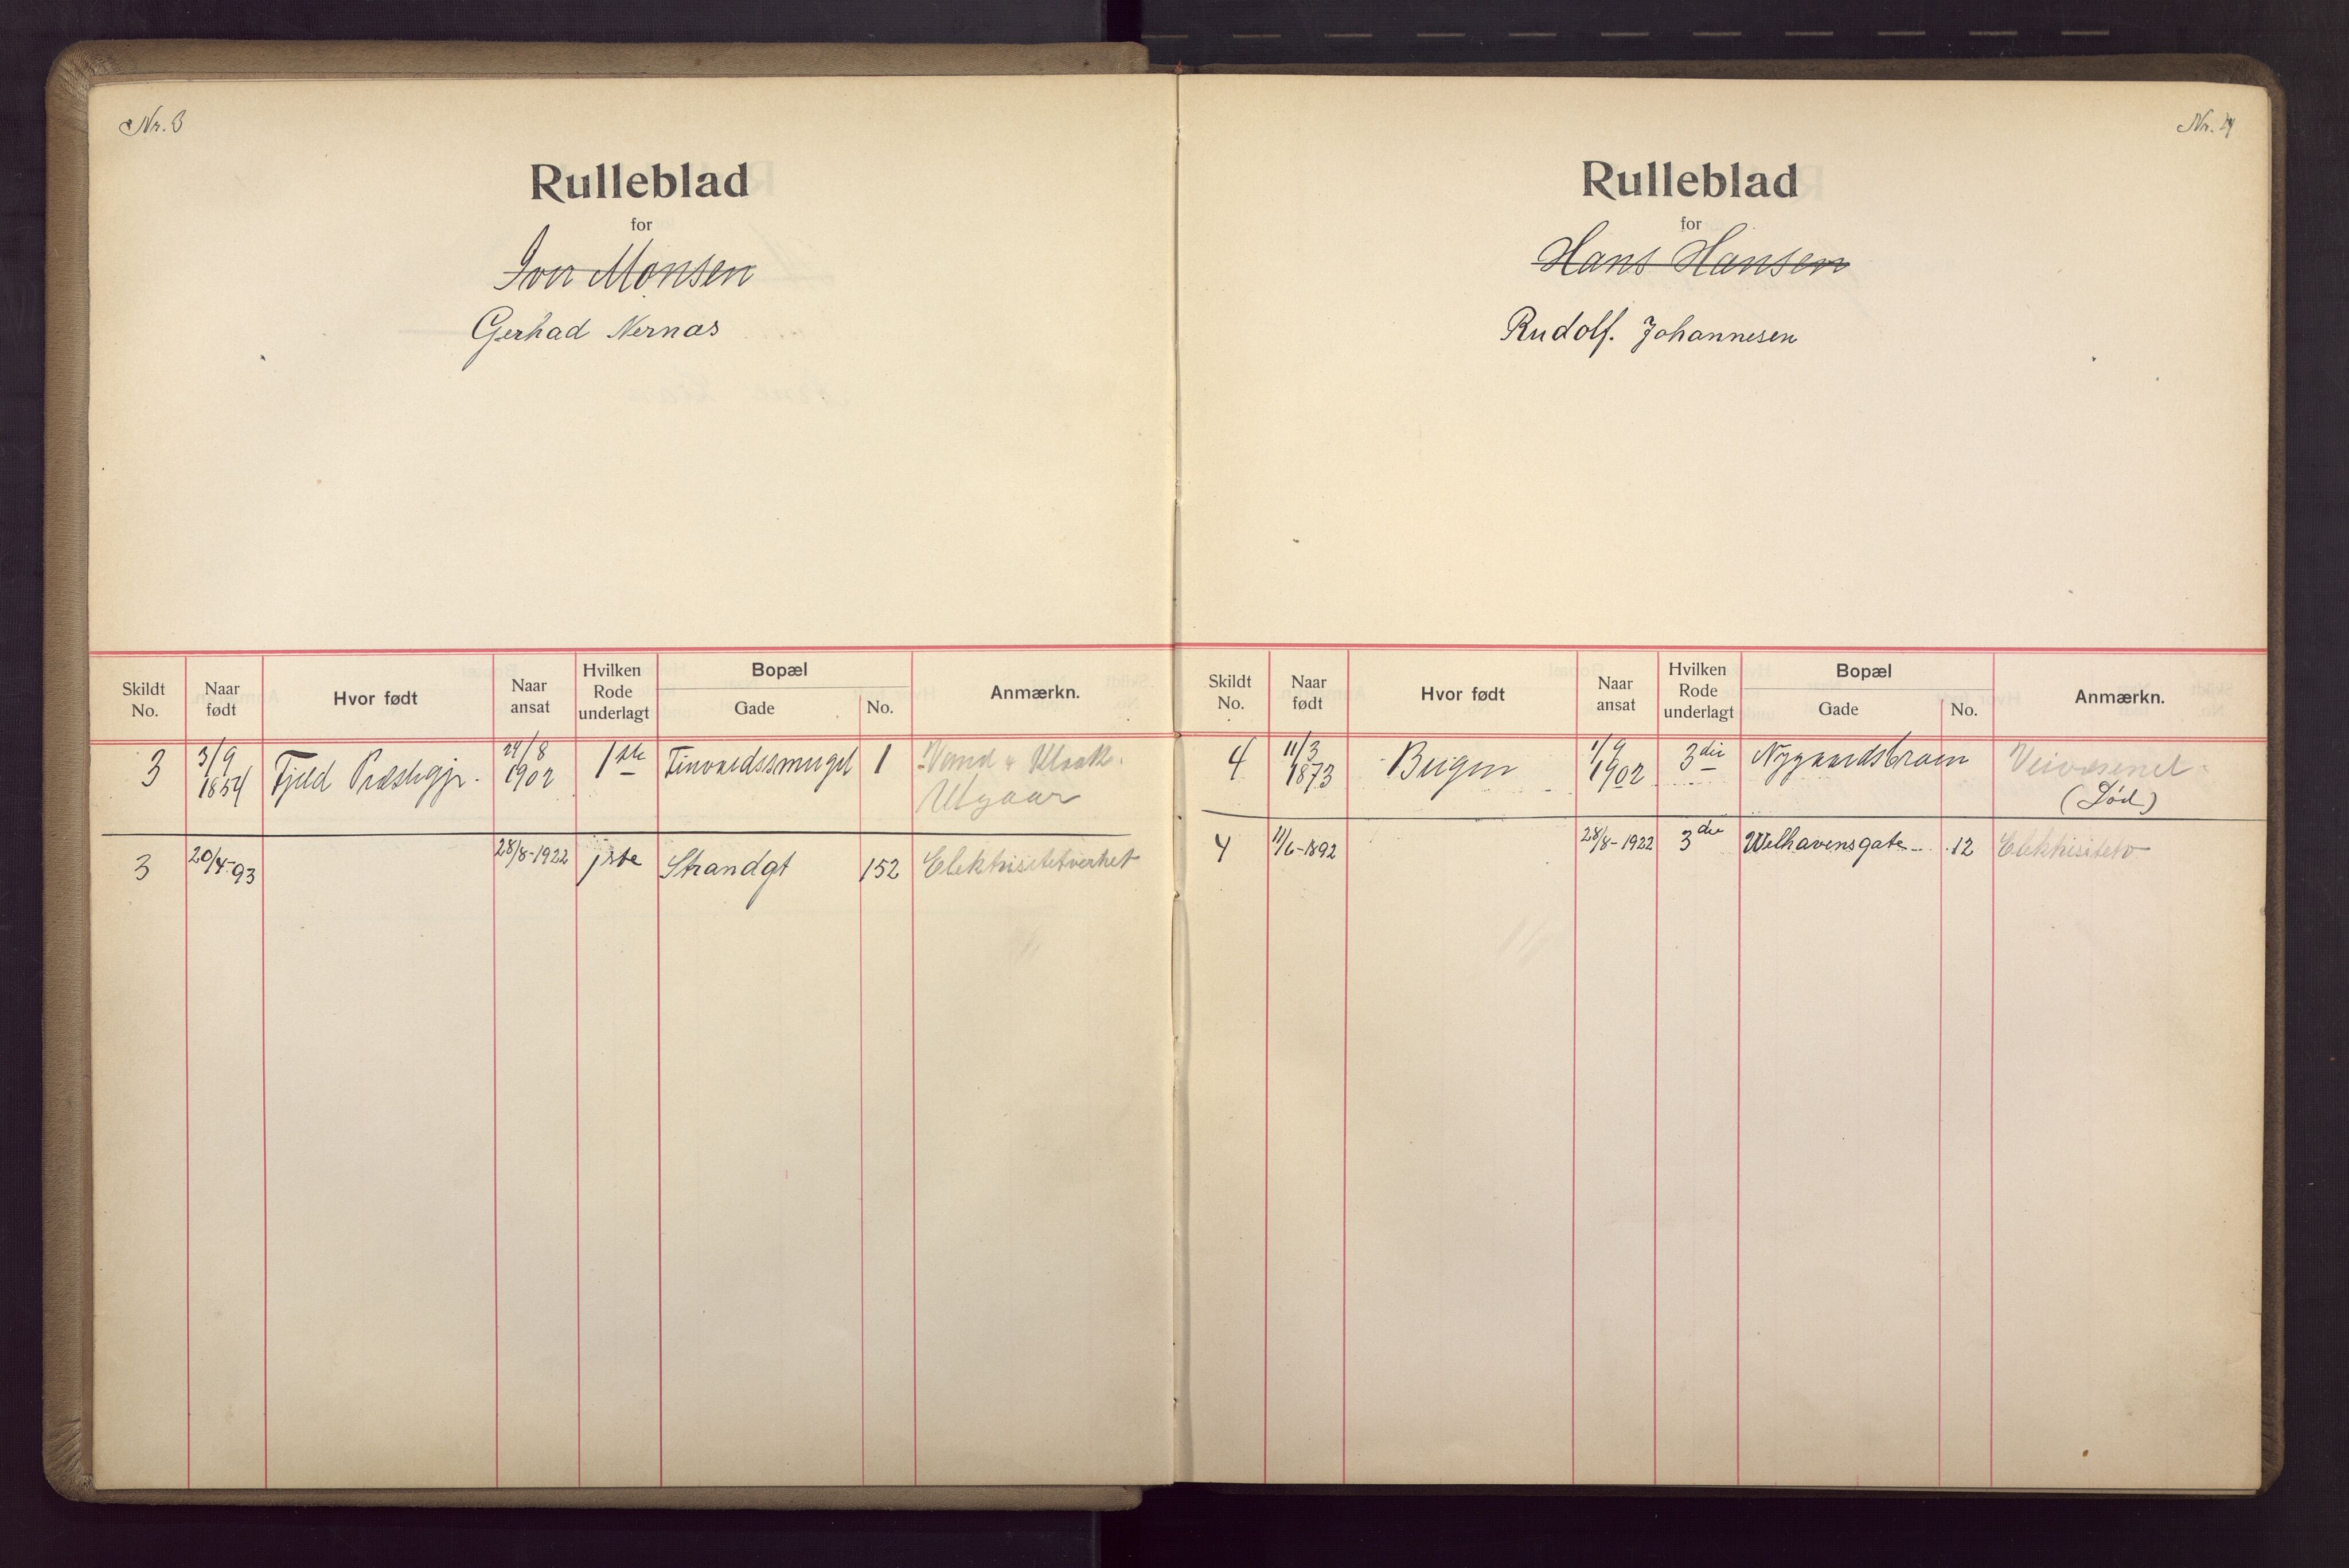 Nr. 3
Rulleblad
for
Iver Monsen
Gerhad Nernæs
Skildt No.
Naar født
Hvor født
Naar ansat
Hvilken Rode underlagt
Bopæl
Gade
No.
Anmærkn.
3 3/9 1854 Fjeld Præstegjr. 24/8 1902 1ste Tinvædssmuget 1 Vand & Kloak.
Utgaar
3 20/4-93 28/8-1922 1ste Strandgt 152 Elektrisitetverket
Nr. 4
Rulleblad
for
Hans Hansen
Rudolf. Johannesen
Skildt No.
Naar født
Hvor født
Naar ansat
Hvilken Rode underlagt
Bopæl
Gade
No.
Anmærkn.
4 11/3 1873 Bergen 1/9 1902 3die Nygaardsbroen Veivæsenet
(Død)
4 11/6-1892 28/8-1922 3die Welhavensgate 12 Elektrisitetv